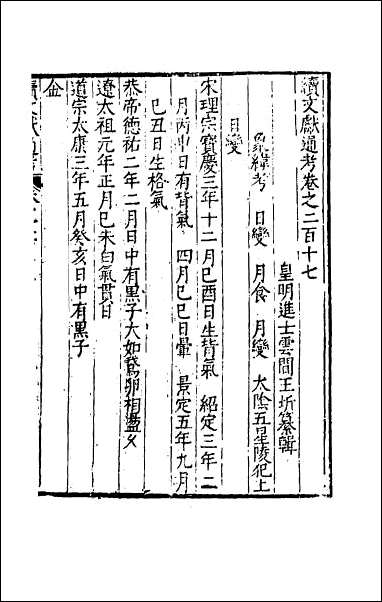 續文獻通考卷之二百十七
皇明進士雲間王圻纂輯
象緯考 日變 月食 月變 太陰五星陵犯上
日變
宋理宗寶慶三年十二月巳酉日生背氣 紹定三年二
月丙申日有背氣 四月巳巳日暈 景定五年九月
巳丑日生格氣
恭帝德祐二年二月日中有黒子大如鵞卵相盪乆
遼太祖元年正月巳未白氣貫日
道宗太康三年五月癸亥日中有黒子
金